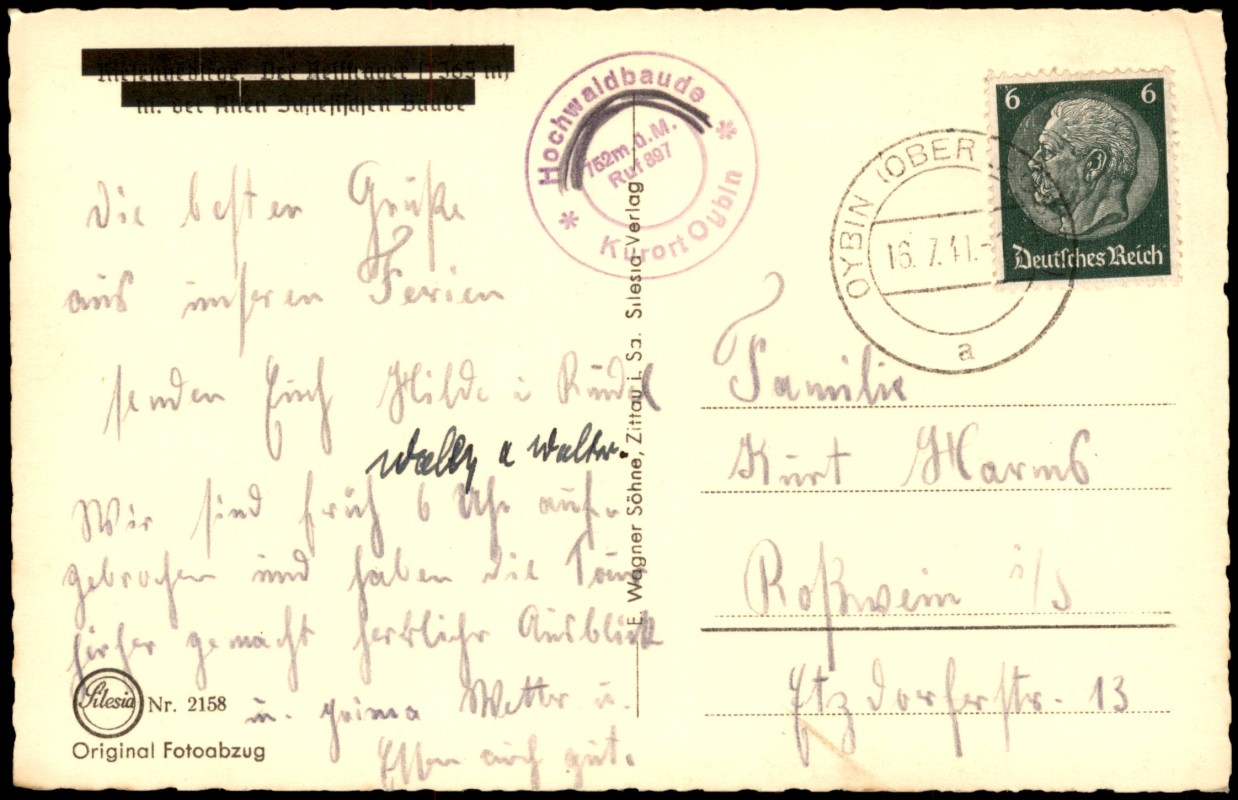 Riesengebirge. Der Reifträger (1363 m)
m. der Alten Schlesischen Baude
Hochwaldbaude
752m.ü.M.
Ruf 897
* Kurort Oybin *
6 6
Deutsches Reich
OYBIN (OBER
16.7.41.-
a
Die besten Grüße
aus unseren Ferien
senden Euch Hilde u Rudel
Wally u Walter.
Wir sind früh 6 Uhr auf-
gebrochen und haben die Tour
hierher gemacht herrlicher Ausblick
u. prima Wetter u.
Essen auch gut.
Silesia Nr. 2158
Original Fotoabzug
E. Wagner Söhne, Zittau i. Sa. Silesia-Verlag
Familie
Kurt Harms
Roßwein i/S
Etzdorferstr. 13